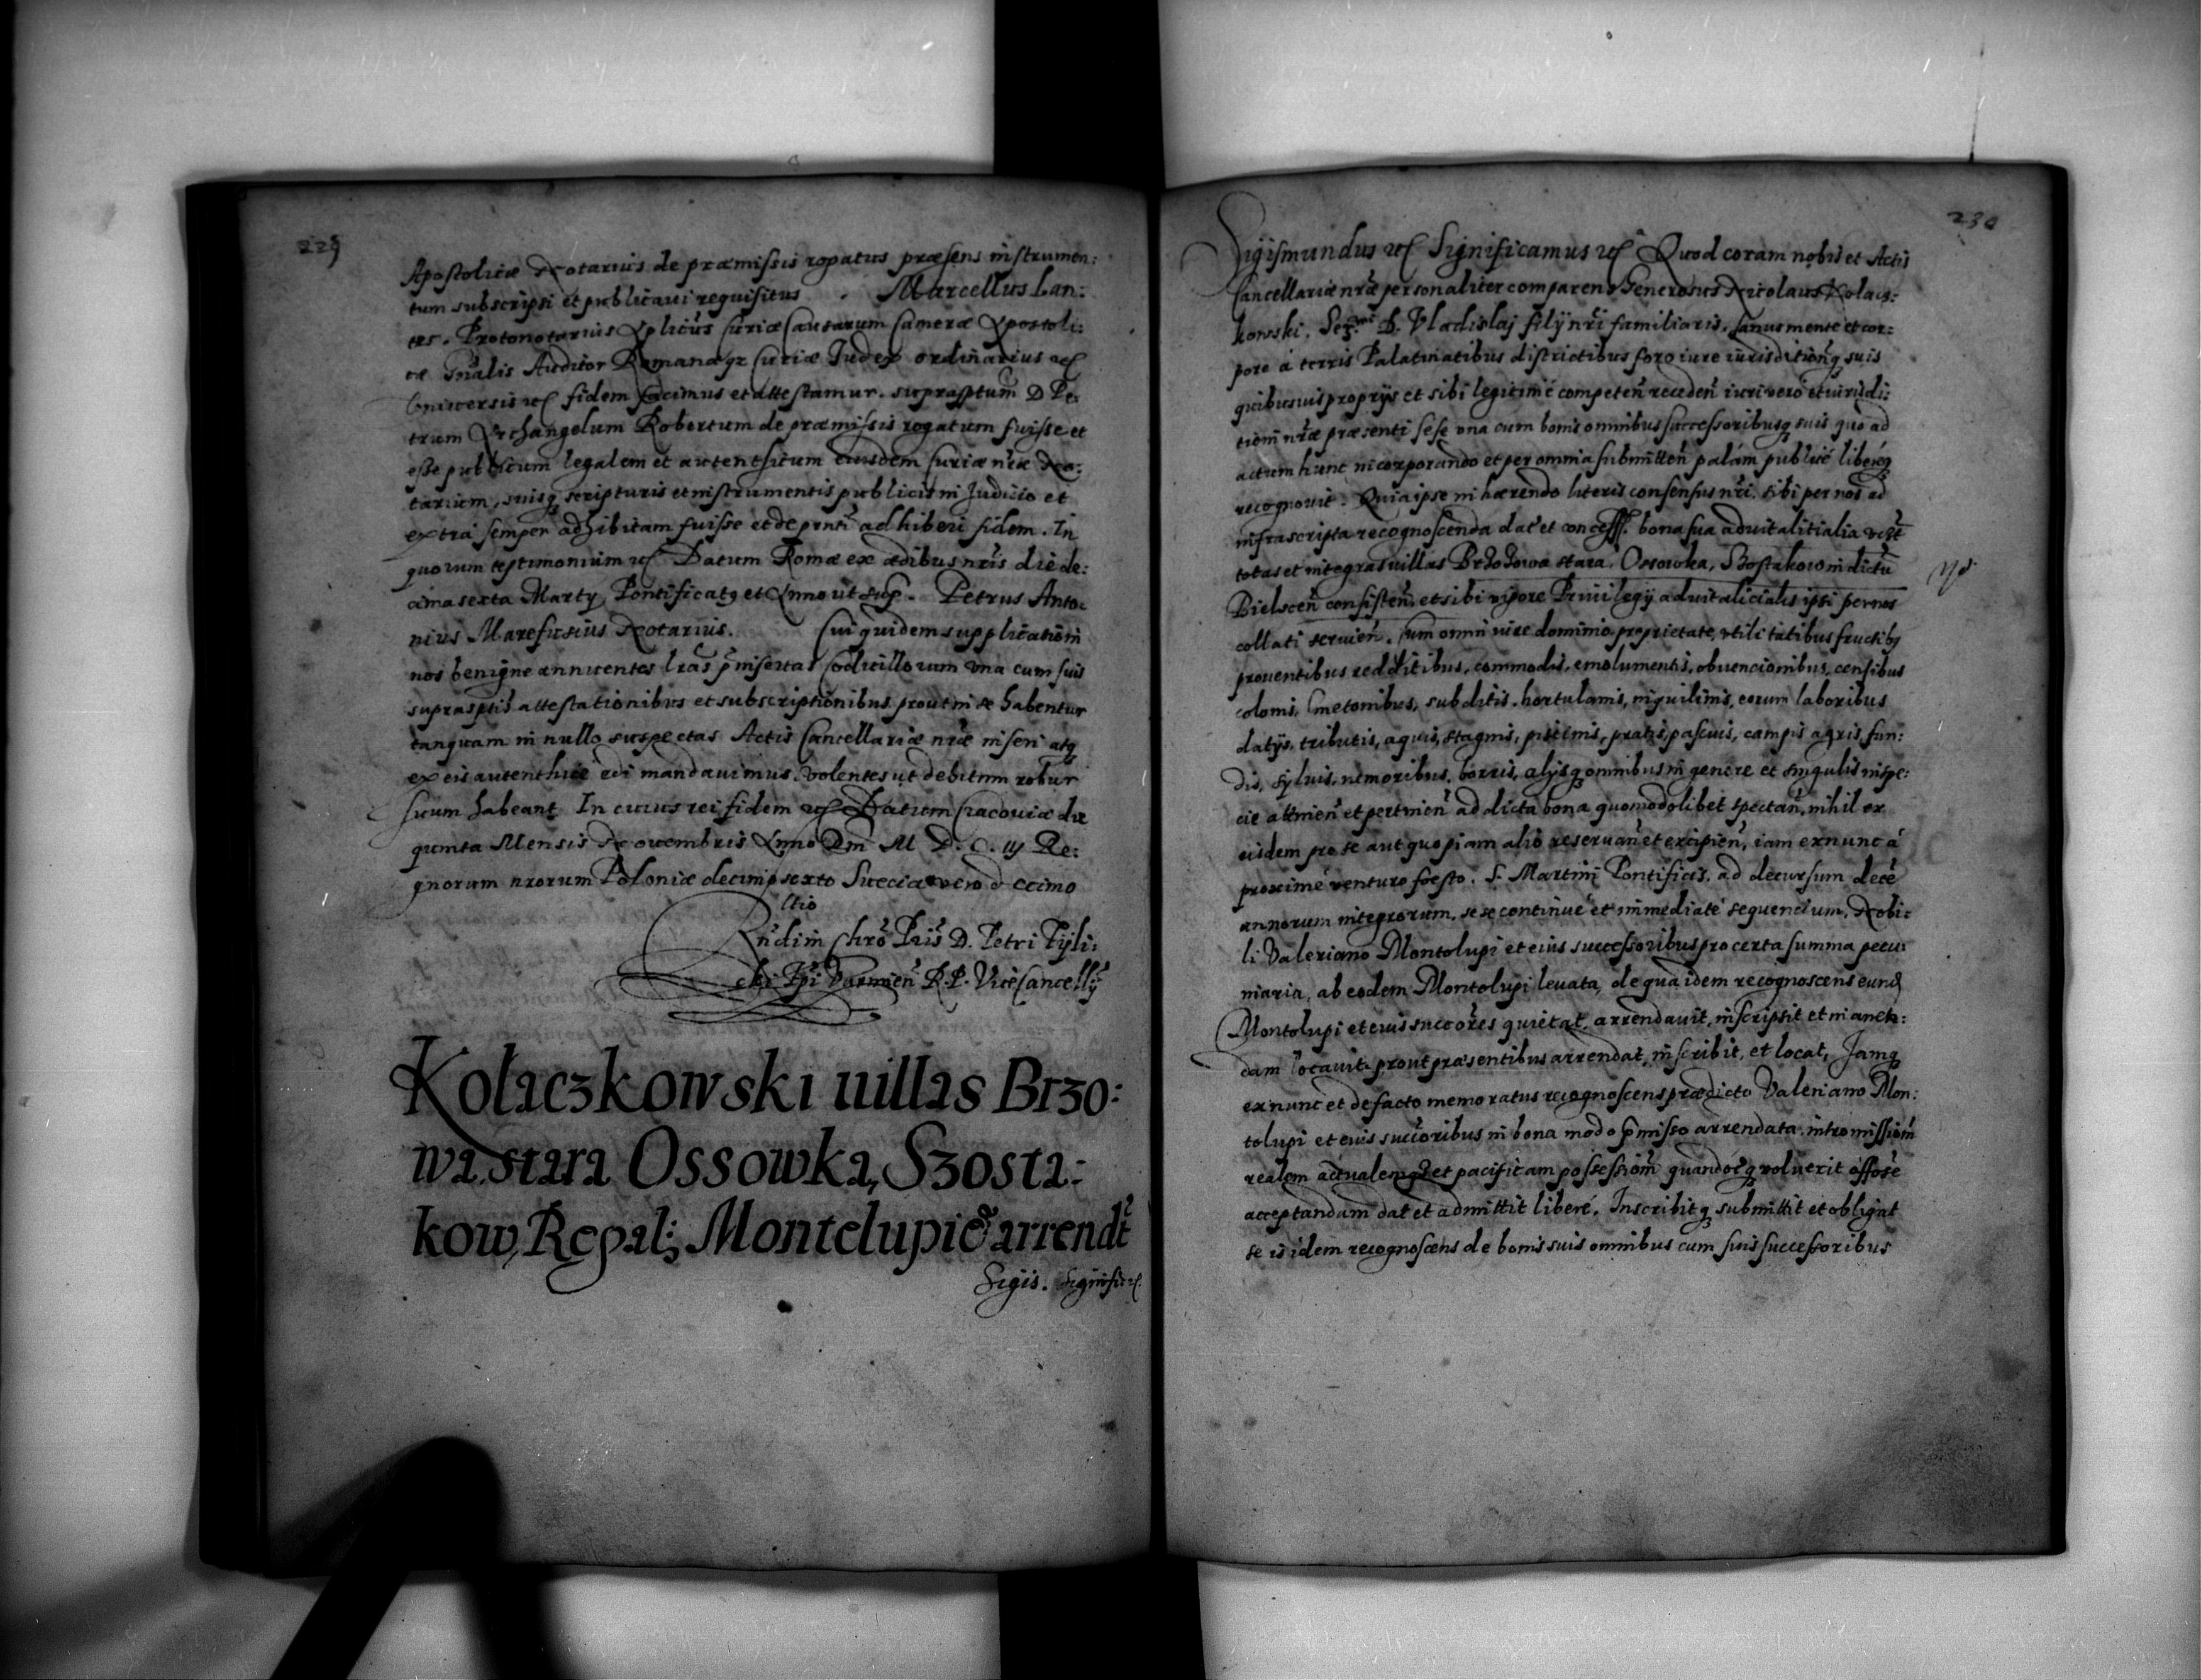 229
Apostolicæ Notarius de præmissis rogatus præsens instrumen:
tum subscripsi et publicaui requisitus . Marcellus Lan:
tes. Protonotarius Aplicus Curiæ Causarum Cameræ Apostoli:
cæ Gnalis Auditor Romanaqz Curiæ Iudex ordinarius etc
Vniuersis etc fidem facimus et attestamur. suprasptum D Pe:
trum Archangelum Robertum de præmissis rogatum fuisse et
esse publicum legalem et autenthicum eiusdem Curiæ nræ No:
tarium, suisq scripturis et instrumentis publicis in Judicio et
extra semper adhibitam fuisse et de pnti adhiberi fidem. In
quorum testimonium etc Datum Romæ ex ædibus nris die de:
cima sexta Martij Pontificatq et Anno ut sup. Petrus Anto:
nius Marefusius Notarius. Cui quidem supplicationi
nos benigne annuentes lras pinsertas Codicillorum vna cum suis
suprasptis attestationibus et subscriptionibus prout in se habentur
tanquam in nullo suspectas Actis Cancellariæ nræ inseri atq
ex eis autenthice edi mandauimus. volentes ut debitum robur
suum habeant In cuius rei fidem etc Datum Cracouiæ die
quinta Mensis Nouembris Anno Dni M D. C. iij Re:
gnorum nrorum Poloniæ decimo sexto Sueciæ vero decimo
Rndi in Chro Pris D. Petri Tyli:
cki Epi Varmien R.P. ViceCancellij
Kołaczkowski uillas Brzo:
wa stara Ossowka, Szosta:
kow, Regal: Montelupie arrendt
Sigis. Significa.
230
Sigismundus etc Significamus etc Quod coram nobis et Actis
Cancellariæ nræ personaliter comparens Generosus Nicolaus Kolacz:
kowski. Sermi D. Vladislaj filij nri familiaris, sanus mente et cor:
pore à terris Palatinatibus districtibus foro iure iurisditionq suis
quibusuis proprijs et sibi legitimè competen receden iuri vero et iurisdi:
tioni nræ præsenti sese vna cum bonis omnibus successoribusq suis quo ad
actum hunc incorporando et per omnia submitten palàm publicè liberèq
recognouit. Quia ipse in hærendo literis consensus nri. sibi per nos ad
infrascripta recognoscenda dat et concess. bona sua aduitalitialia vizt
totas et integras uillas Brzozowa stara, Ossowka, Szostakow in dictu
Bielscen consisten et sibi vigore Priuilegij aduitalicialis ipsi per nos
collati seruien. Cum omni iure dominio proprietate, vtilitatibus fructibq
prouentibus redditibus, commodis, emolumentis, obuencionibus, censibus
colonis, Cmetonibus, subditis, hortulanis, inquilinis, eorum laboribus
datijs, tributis, aquis, stagnis, piscinis, pratis, pascuis, campis agris, fun:
dis, syluis, nemoribus, borris, alijsq omnibus in genere et singulis in spe:
cie attinen et pertinen ad dicta bona quomodolibet spectan, nihil ex
eisdem pro se aut quopiam alio reseruan et excipien, iam ex nunc à
proximè venturo foesto. S. Martini Pontificis, ad decursum dece
annorum integrorum, sese continuè et immediatè sequencium, Nobi:
li Valeriano Montolupi et eius successoribus pro certa summa pecu:
niaria, ab eodem Montolupi leuata, de qua idem recognoscens eund
Montolupi et eius succores quietat, arrendauit, inscripsit et in aren:
dam locauit prout præsentibus arrendat, inscribit, et locat, Jamq
ex nunc et de facto memoratus recognoscens prædicto Valeriano Mon:
tolupi et eius succoribus in bona modo pmisso arrendata, intromissioni
realem actualemqz et pacificam possessioni quandocq voluerit
acceptandam dat et admittit liberè, Inscribitq submittit et obligat
se is idem recognoscens de bonis suis omnibus cum suis successoribus